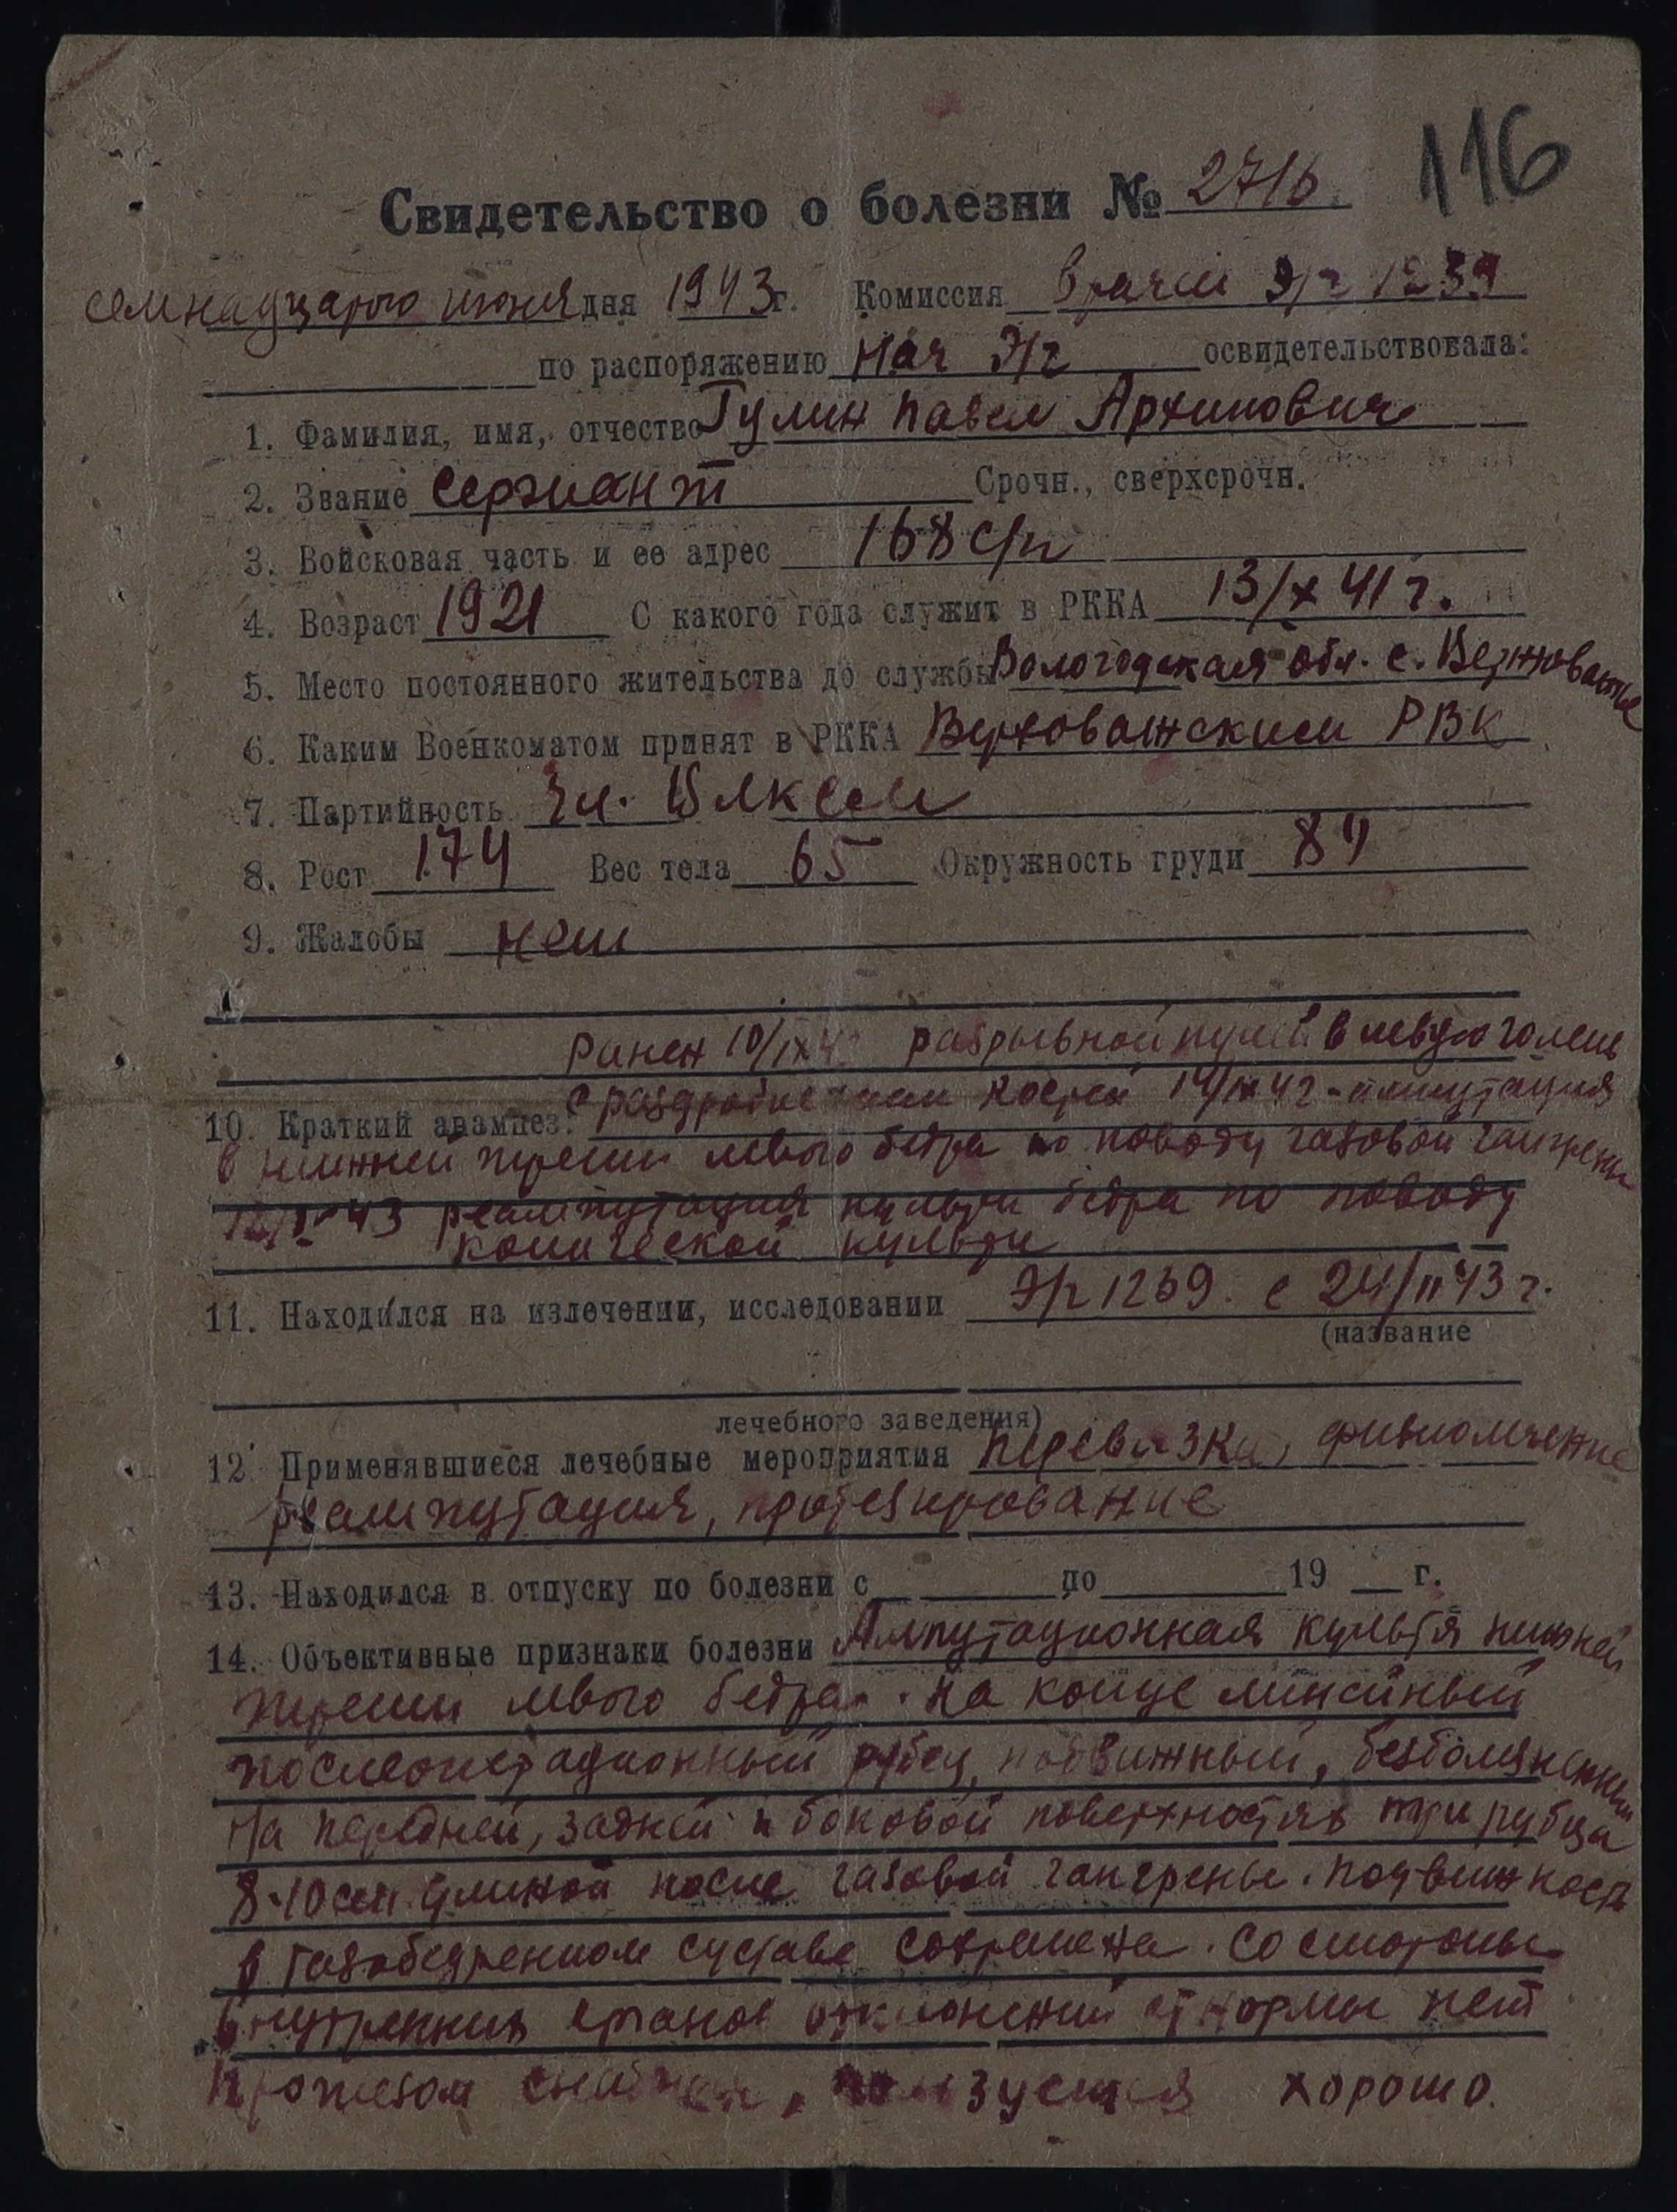 116
Свидетельство о болезни № 2716.
семнадцатого июня дня 1943 г. Комиссия врачей э/г 1239
по распоряжению Нач Э/г освидетельствовала:
1. Фамилия, имя, отчество Гулин Павел Архипович
2. Звание сержант Срочн., сверхсрочн.
3. Войсковая часть и ее адрес 168 с/п
4. Возраст 1921 С какого года служит в РККА 13/X 41 г.
5. Место постоянного жительства до службы Вологодская обл. с. Верховажье
6. Каким Военкоматом принят в РККА Верховажским РВК
7. Партийность Чл. ВЛКСМ
8. Рост 174 Вес тела 65 Окружность груди 84
9. Жалобы нет
Ранен 10/IX 4 разрывной пулей в левую голень
10. Краткий анамнез: с раздроблением костей 14/IX 42 - ампутация
в нижней трети левого бедра по поводу газовой гангрены
43 реампутация культи бедра по поводу
конической культи
11. Находился на излечении, исследовании Э/г 1239. с 24/II 43 г.
(название
лечебного заведения)
12. Применявшиеся лечебные мероприятия перевязки, физиолечение
реампутация, протезирование
13. Находился в отпуску по болезни с по 19 г.
14. Объективные признаки болезни Ампутационная культя нижней
трети левого бедра. На конце линейный
послеоперационный рубец, подвижный, безболезненный
На передней, задней и боковой поверхностях три рубца
8-10 см длиной после газовой гангрены. Подвижность
в тазобедренном суставе сохранена. Со стороны
внутренних органов отклонений от нормы нет
Протезом снабжен, пользуется хорошо.